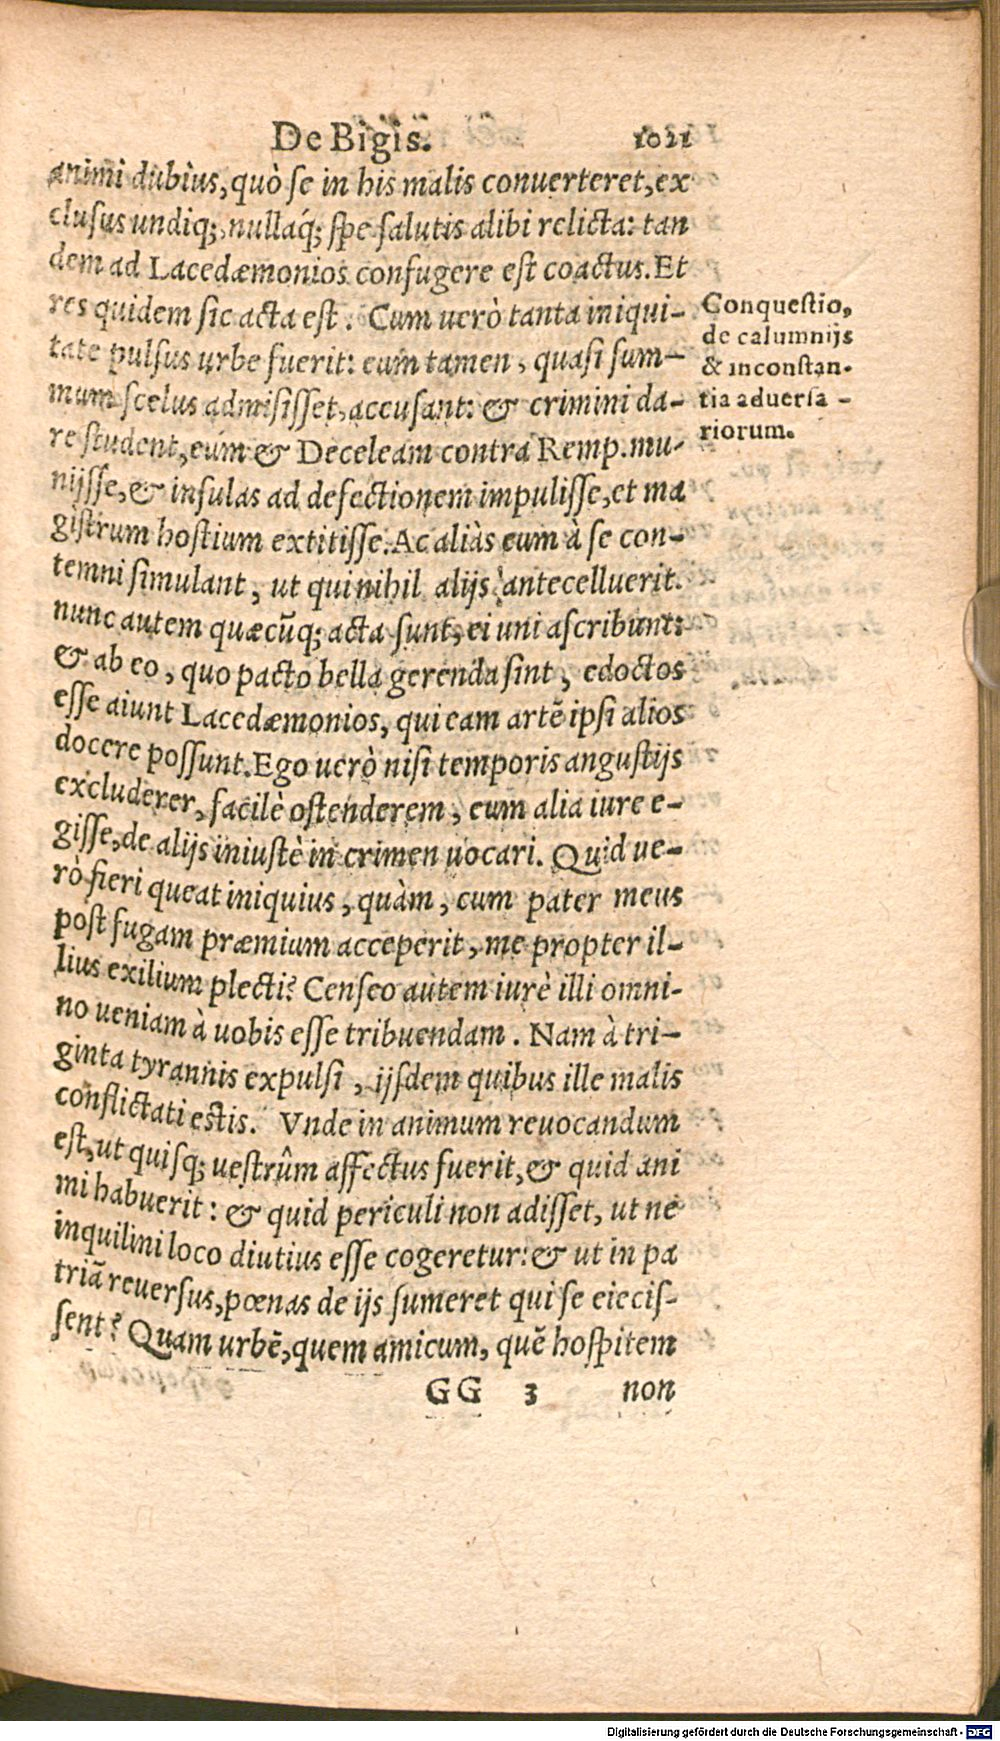 De Bigis. 1021
animi dubius, quò se in his malis conuerteret, ex
clusus undiq;, nullaq́; spe salutis alibi relicta: tan
dem ad Lacedæmonios confugere est coactus. Et
res quidem sic acta est. Cum uerò tanta iniqui-
tate pulsus urbe fuerit: eum tamen, quasi sum-
mum scelus admisisset, accusant: & crimini da-
re student, eum & Deceleam contra Remp. mu-
nijsse, & insulas ad defectionem impulisse, et ma
gistrum hostium extitisse. Ac aliàs eum à se con-
temni simulant, ut qui nihil alijs antecelluerit.
nunc autem quæcũq; acta sunt, ei uni ascribunt:
& ab eo, quo pacto bella gerenda sint, edoctos
esse aiunt Lacedæmonios, qui eam artẽ ipsi alios
docere possunt. Ego uerò nisi temporis angustijs
excluderer, facilè ostenderem, eum alia iure e-
gisse, de alijs iniustè in crimen uocari. Quid ue-
rò fieri queat iniquius, quàm, cum pater meus
post fugam præmium acceperit, me propter il-
lius exilium plecti? Censeo autem iurè illi omni-
no ueniam à uobis esse tribuendam. Nam à tri-
ginta tyrannis expulsi, ijsdem quibus ille malis
conflictati estis. Vnde in animum reuocandum
est, ut quisq; uestrûm affectus fuerit, & quid ani
mi habuerit: & quid periculi non adisset, ut ne
inquilini loco diutius esse cogeretur: & ut in pa
triã reuersus, pœnas de ijs sumeret qui se eiecis-
sent? Quam urbẽ, quem amicum, quẽ hospitem
GG 3 non
Conquestio,
de calumnijs
& inconstan-
tia aduersa-
riorum.
Digitalisierung gefördert durch die Deutsche Forschungsgemeinschaft - DFG